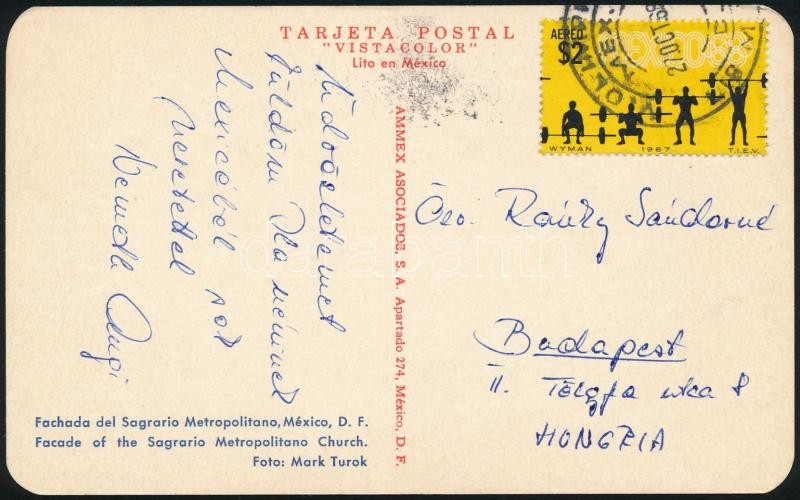 TARJETA POSTAL
"VISTACOLOR"
Lito en México
AEREO
$2
MEXICO68
WYMAN 1967 T.I.E.V.
Üdvözletemet
küldöm Ila néninek
Mexicóból sok
szeretettel
Németh Angi
AMMEX ASOCIADOS, S. A. Apartado 274, México, D. F.
Özv. Sándorné
Budapest
II. utca 8
HONGRIA
Fachada del Sagrario Metropolitano, México, D. F.
Facade of the Sagrario Metropolitano Church.
Foto: Mark Turok
darabanth